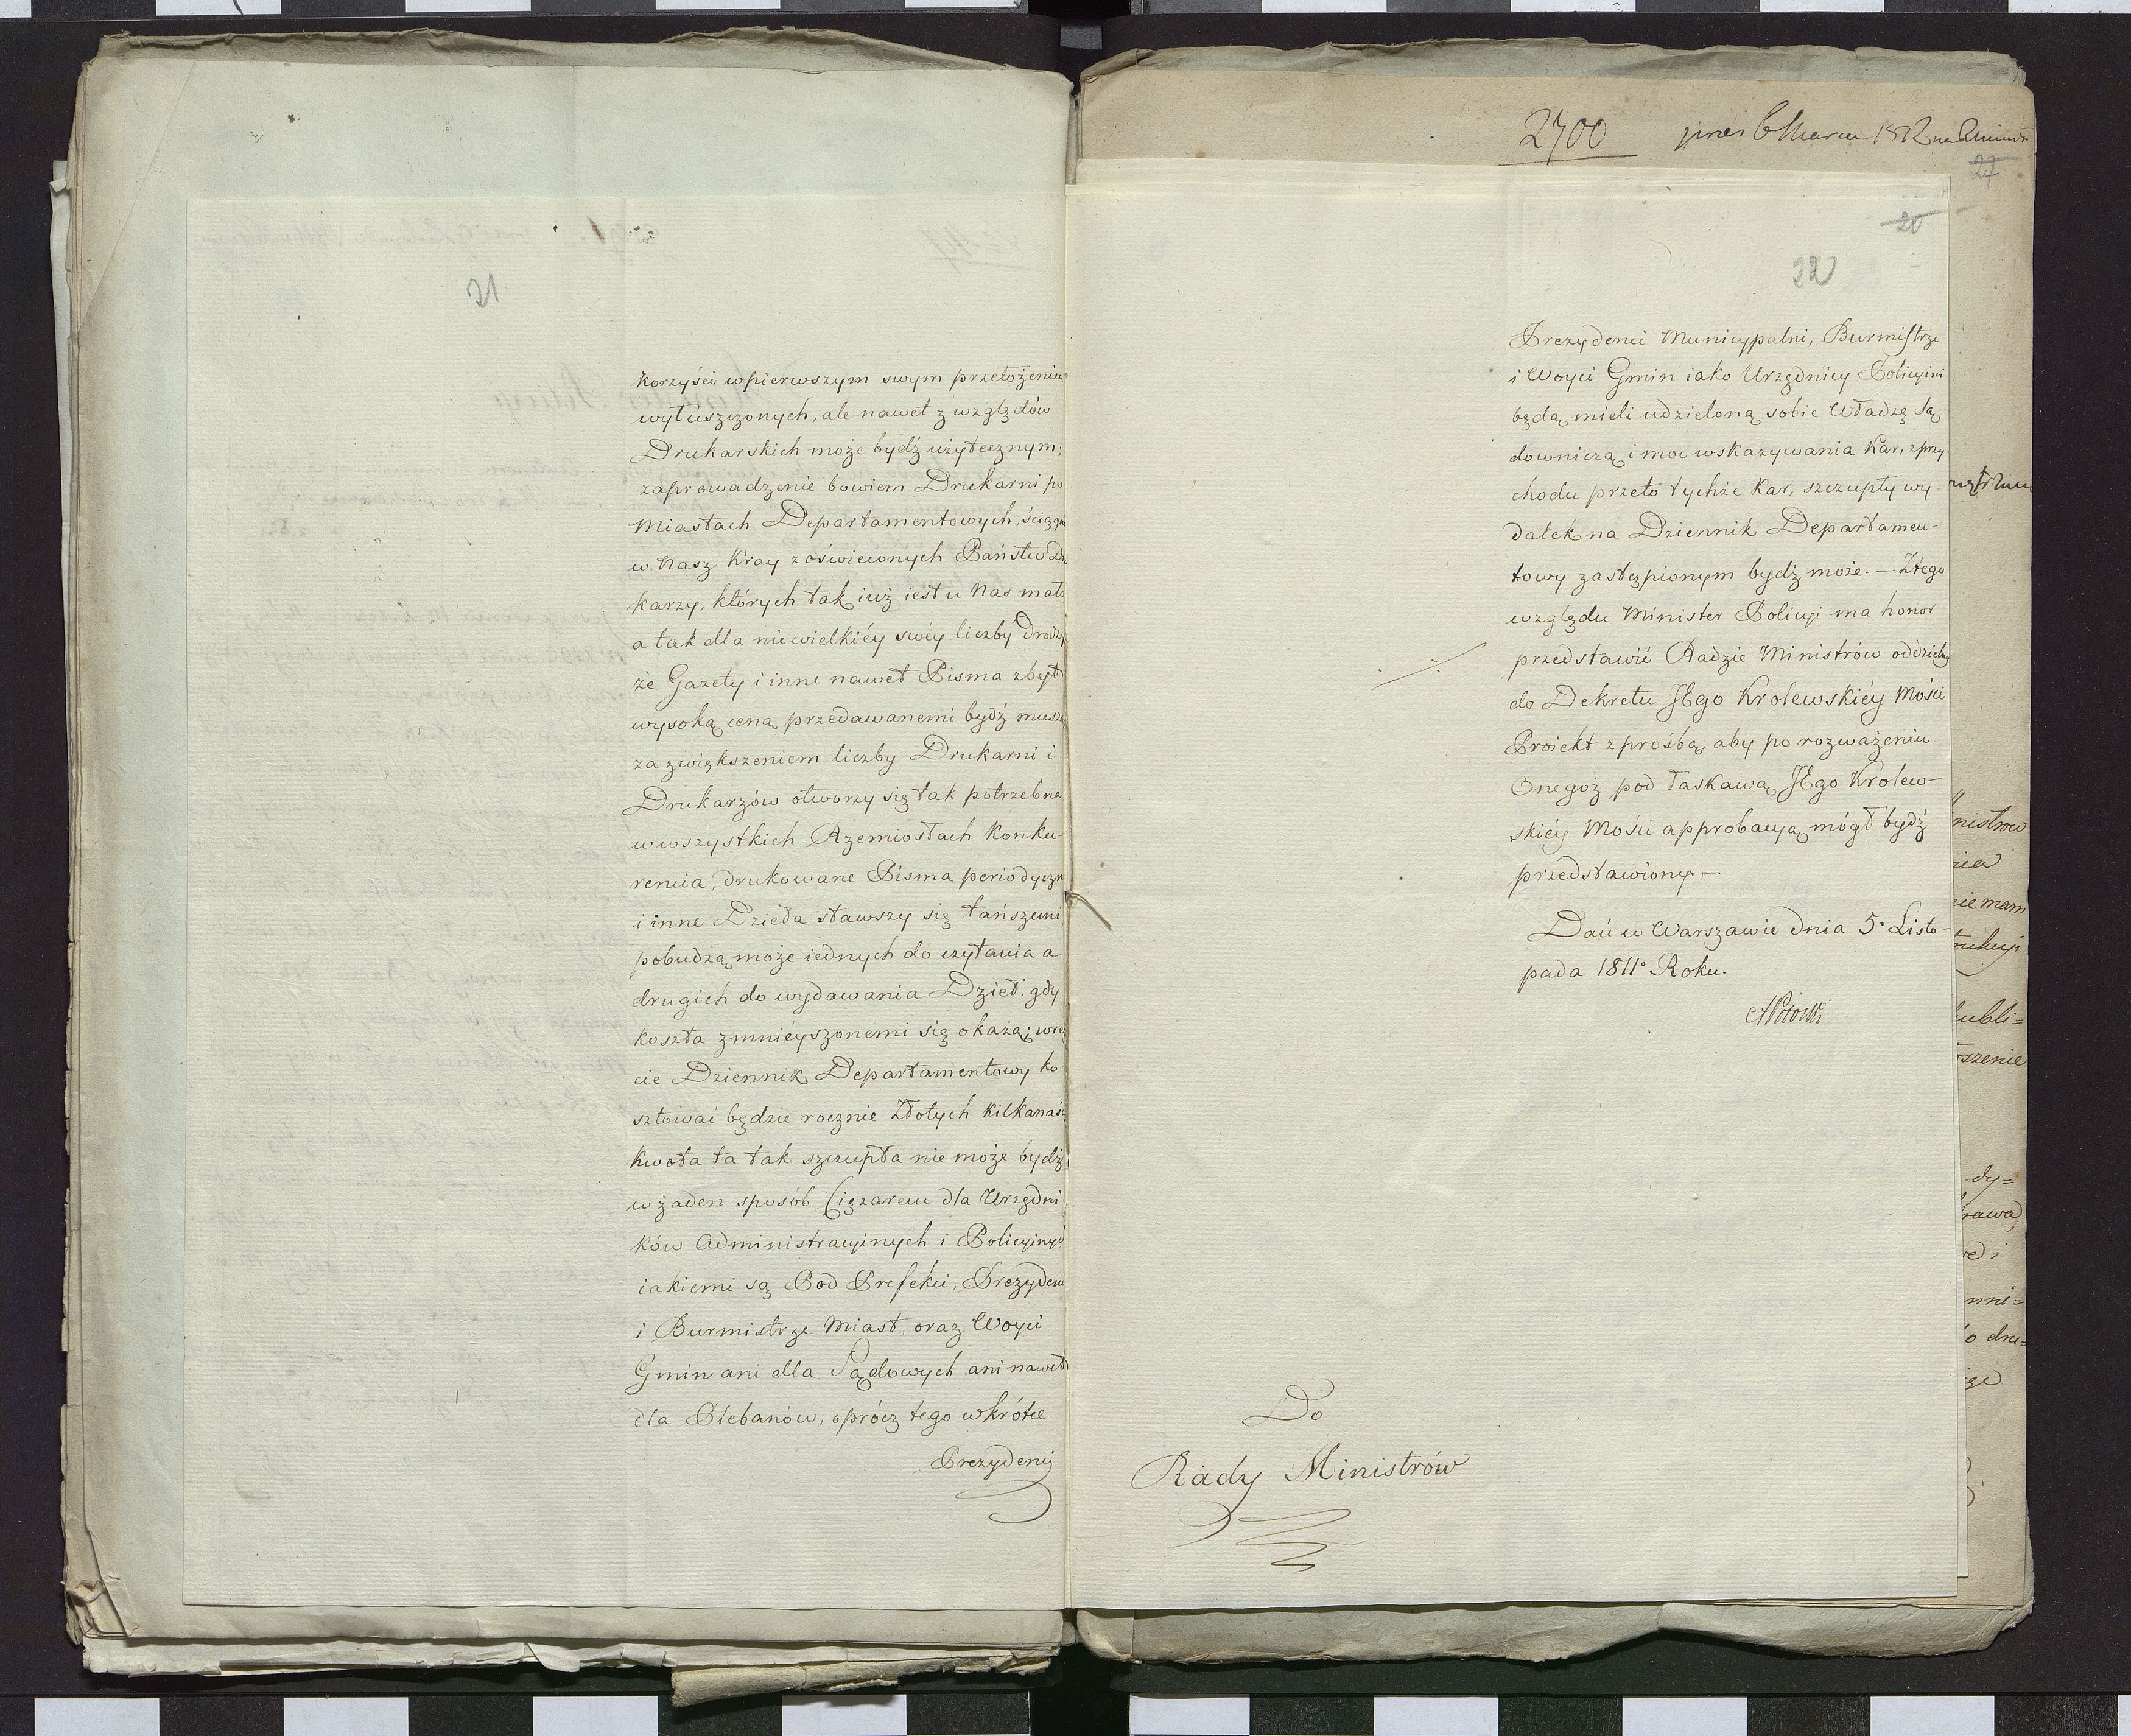 21
korzyści wpierwszym swym przełożeniu
wyłuszczonych, ale nawet z względów
Drukarskich może bydź użytecznym;
zaprowadzenie bowiem Drukarni po
Miastach Departamentowych, ściągn
w Nasz Kray z oświeconych Państw Dr
karzy, których tak iuż iest u Nas mało
a tak dla niewielkiéy swéy liczby drodzy
że Gazety i inne nawet Pisma zbyt
wysoką ceną przedawanemi bydź muszą
za zwiększeniem liczby Drukarni i
Drukarzów otworzy się tak potrzebna
wwszystkich Rzemiosłach Konku-
rencia, drukowane Pisma periodyczn
i inne Dzieła stawszy się tańszemi
pobudzą może iednych do czytania a
drugich do wydawania Dzieł, gdy
koszta zmnieyszonemi się okażą; wre
cie Dziennik Departamentowy ko
sztować będzie rocznie Złotych kilkanaśc
Kwota ta tak szczupła nie może bydź
w żaden sposób Ciężarem dla Urzędni
ków Administracyinych i Policyinych
iakiemi są Pod Prefekci, Prezydenc
i Burmistrze Miast, oraz Woyci
Gmin ani dla Sądowych ani nawet
dla Plebanów, oprócz tego wkrótce
Prezydenci
2700 1812 na
27
20
22
Prezydenci Municypalni, Burmistrze
i Woyci Gmin iako Urzędnicy Policyini
będą mieli udzieloną sobie Władzę Są-
downiczą i moc wskazywania Kar, z przy-
chodu przeto tychże Kar, szczupły wy-
datek na Dziennik Departamen-
towy zastępionym bydź może. — Ztego
względu Minister Policyi ma honor
przedstawić Radzie Ministrów oddzielny
do Dekretu JEgo Krolewskiéy Mości
Proiekt z prośbą, aby po rozważeniu
Onegoż pod łaskawą JEgo Krolew-
skiéy Mości approbacyą mógł bydź
przedstawiony. —
Dań w Warszawie dnia 5. Listo-
pada 1811º Roku.
APotocki
Do
Rady Ministrów
nistrow
nia
nie mam
ubli=
szenie
dy=
rawa
ed i
nni=
o dru=